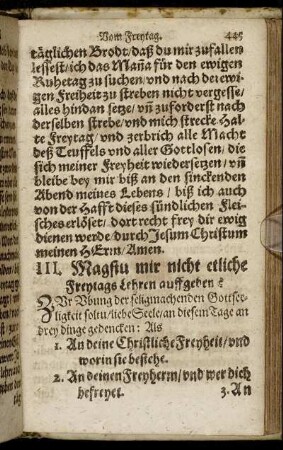 Vom Freytag. 445
täglichen Brodt/daß du mir zufallen
lessest/ich das Maña für den ewigen
Ruhetag zu suchen/vnd nach der ewi-
gen Freiheit zu streben nicht vergesse/
alles hindan setze/vñ zuforderst nach
derselben strebe/vnd mich strecke Hal-
te Freytag/vnd zerbrich alle Macht
deß Teuffels vnd aller Gottlosen/die
sich meiner Freyheit wiedersetzen/vñ
bleibe bey mir biß an den sinckenden
Abend meines Lebens/biß ich auch
von der Hafft dieses sündlichen Flei-
sches erlöset/dort recht frey dir ewig
dienen werde/durch Jesum Christum
meinen HErrn/Amen.
III. Magstu mir nicht etliche
Freytags Lehren auffgeben?
ZVr Vbung der seligmachenden Gottse-
ligkeit soltu/liebe Seele/an diesem Tage an
drey dinge gedencken: Als
1. An deine Christliche Freyheit/vnd
worin sie bestehe.
2. An deinen Freyherrn/vnd wer dich
befreyet. 3. An